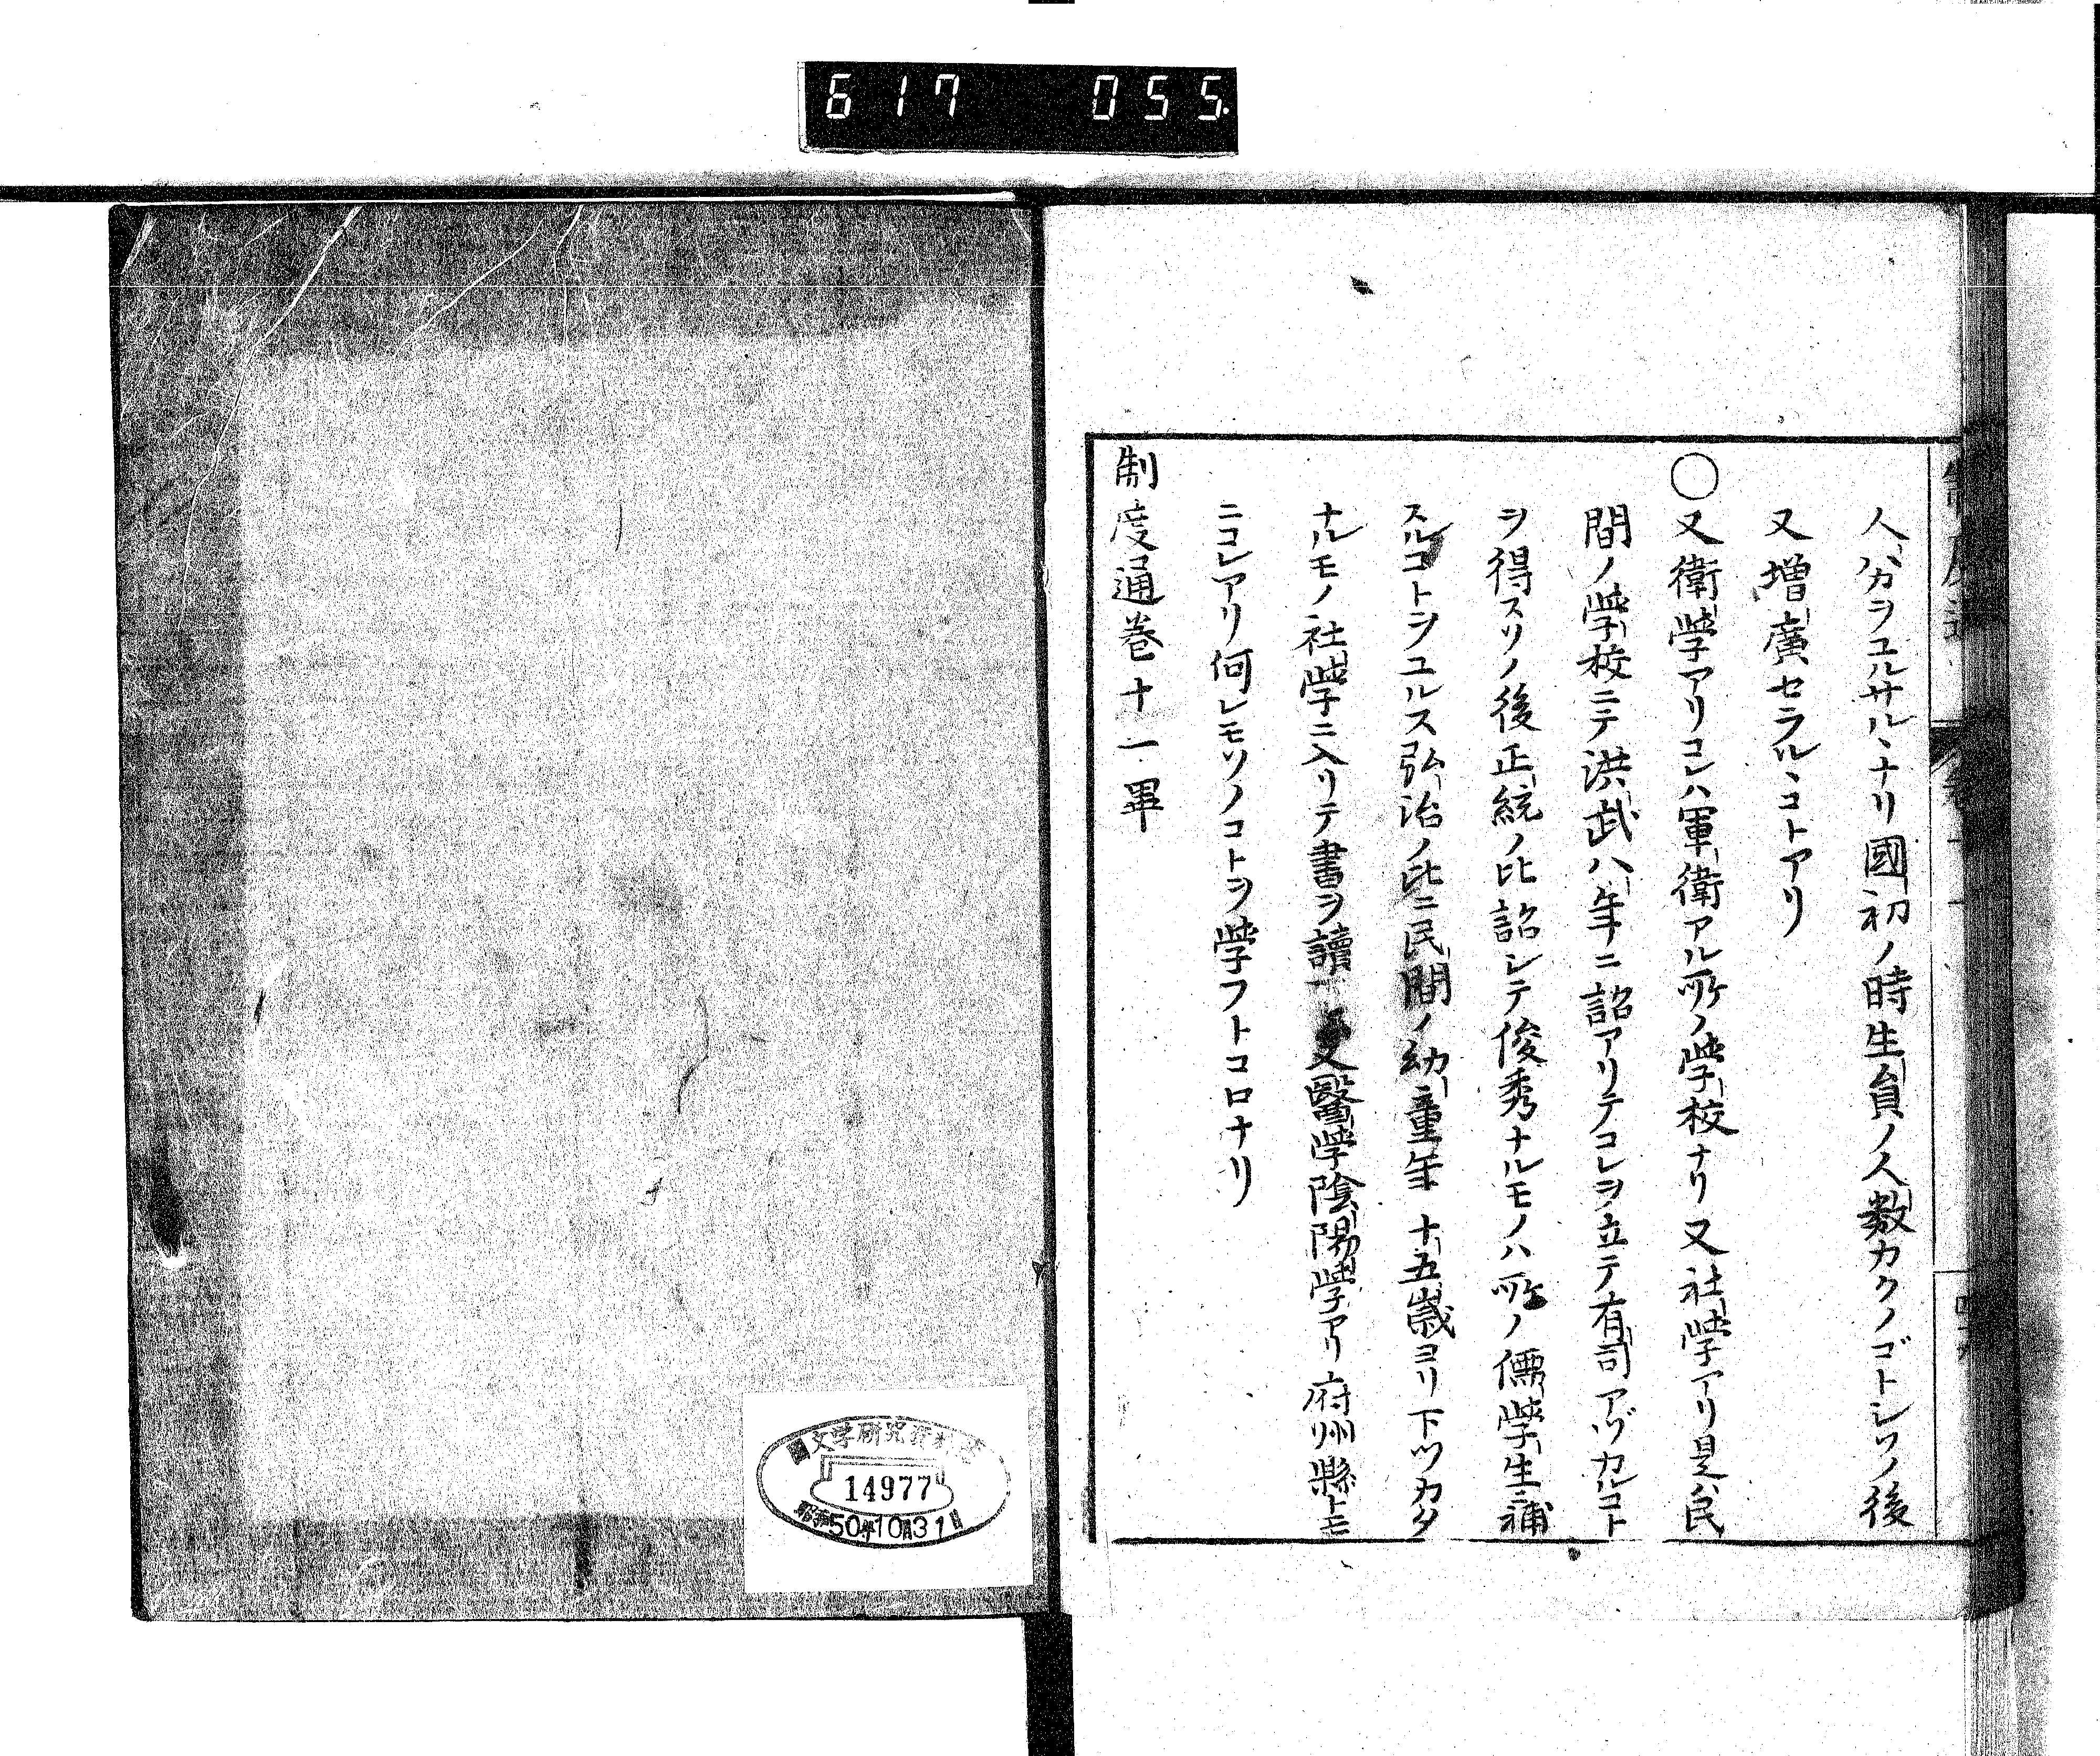 617 055
人バカヲユルサルヽナリ國初ノ時生員ノ人数カクノゴトシソノ後
又増廣セラルヽコトアリ
○又衛學アリコレハ軍衛アル所ノ學校ナリ又社學アリ是ハ民
間ノ學校ニテ洪武八年ニ詔アリテコレヲ立テ有司アヅカルコト
ヲ得スソノ後正統ノ比詔シテ俊秀ナルモノハ所ノ儒學生ニ補
スルコトヲユルス弘治ノ比ニ民間ノ幼童年十五歳ヨリ下ツカタ
ナルモノ社學ニ入リテ書ヲ讀 又醫学陰陽學アリ府州縣トモ
ニコレアリ何レモソノコトヲ學フトコロナリ
制度通巻十一畢
文学研究資料
14977
昭和50年10月31日